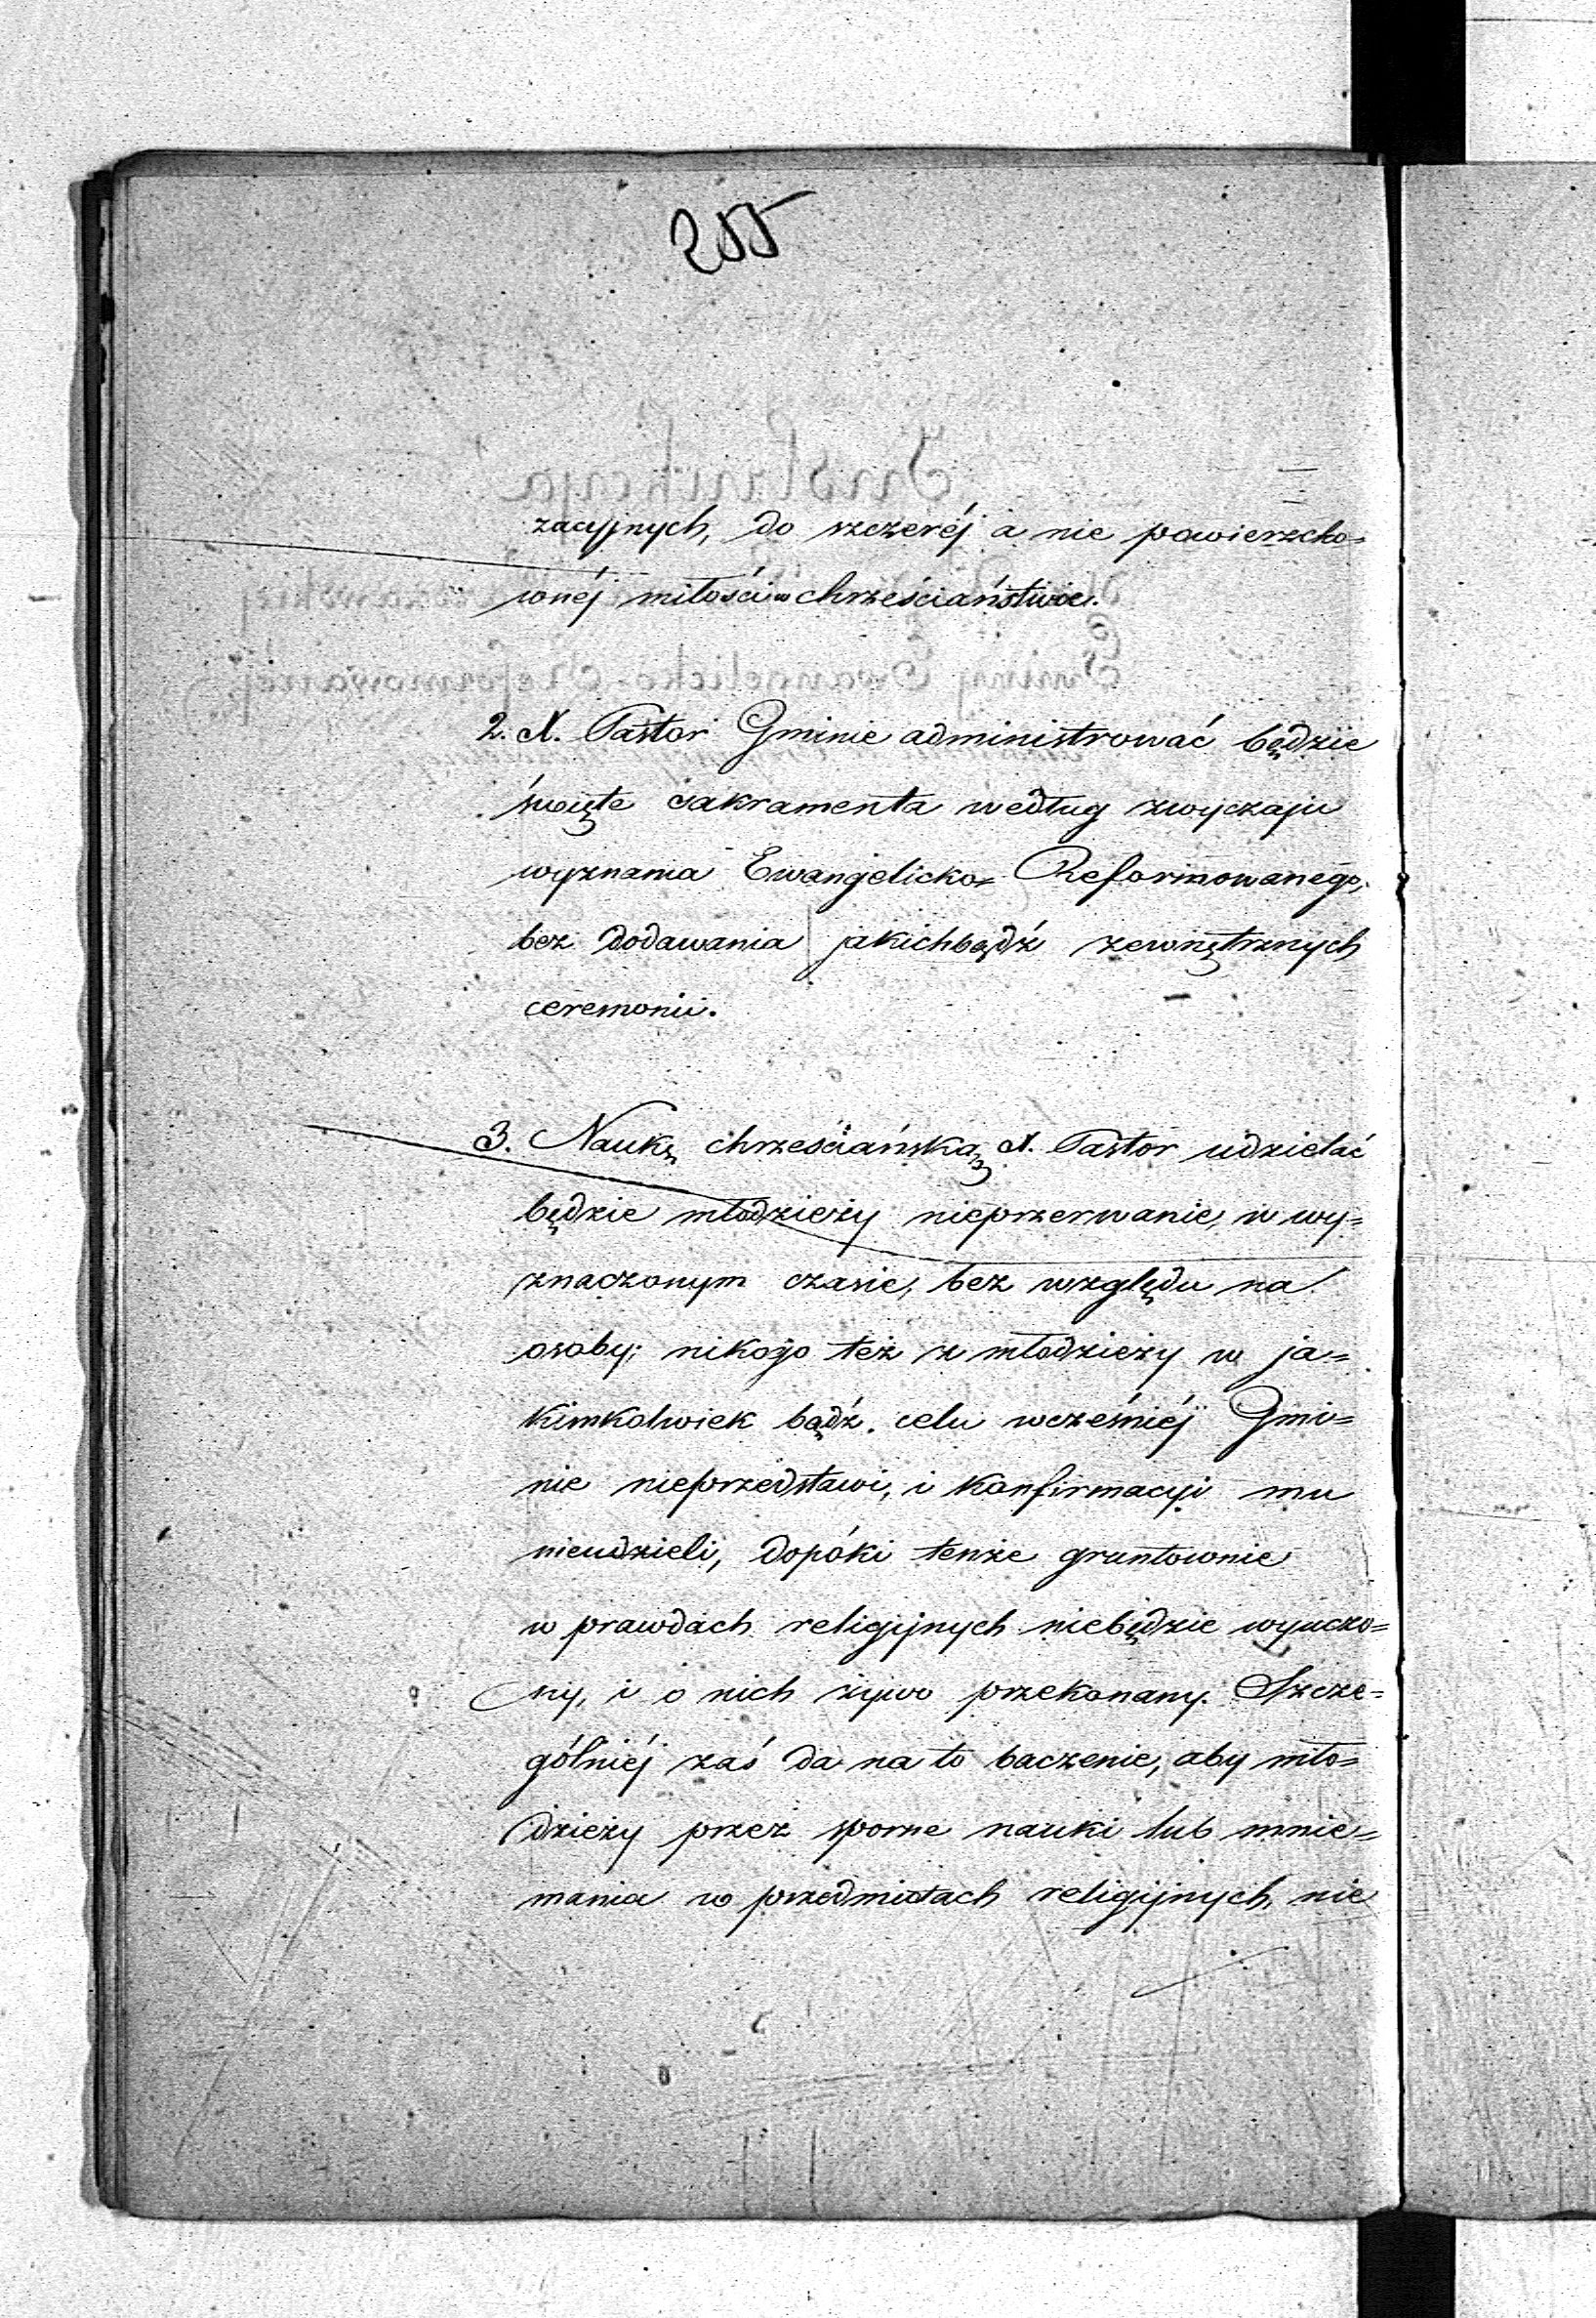 255
zacyjnych, do szczeréj a nie powierzcho=
wnéj miłości w chrześciaństwie.
2. X. Pastor Gminie administrować będzie
święte sakramenta według zwyczaju
wyznania Ewangelicko= Reformowanego,
bez dodawania jakichbądź zewnętrznych
ceremonii.
3. Naukę chrześciańską X. Pastor udzielać
będzie młodzieży nieprzerwanie, w wy=
znaczonym czasie, bez względu na
osoby; nikogo też z młodzieży w ja=
kimkolwiek bądź celu wcześniéj Gmi=
nie nieprzedstawi, i Konfirmacyi mu
nieudzieli, dopóki tenże gruntownie
w prawdach religijnych niebędzie wyuczo=
ny, i o nich żywo przekonany. Szcze=
gólniéj zaś da na to baczenie, aby mło=
dzieży przez sporne nauki lub mnie=
mania w przedmiotach religijnych, nie